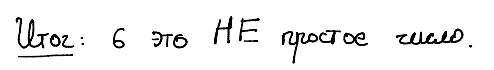 Итог: 6 это НЕ простое число.